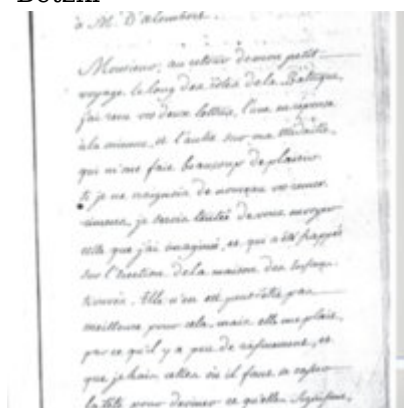 à M. D'alembert.
Monsieur, au retour de mon petit
voyage le long des côtes de la Baltique,
j'ai reçu vos deux lettres, l'une en réponse
à la mienne, et l'autre sur ma médaille,
qui m'ont fait beaucoup de plaisir
si je ne craignois de nouveau vos remer-
cimens, je serois tentée de vous envoyer
celle que j'ai imaginé, et qui a été frappée
sur l'érection de la maison des Enfans
trouvés. Elle n'en est peut-être pas
meilleure pour cela, mais elle me plait,
par ce qu'il y a peu de rafinement, et
que je hais celles où il faut se casser
la tête pour deviner ce qu'elles signifient,